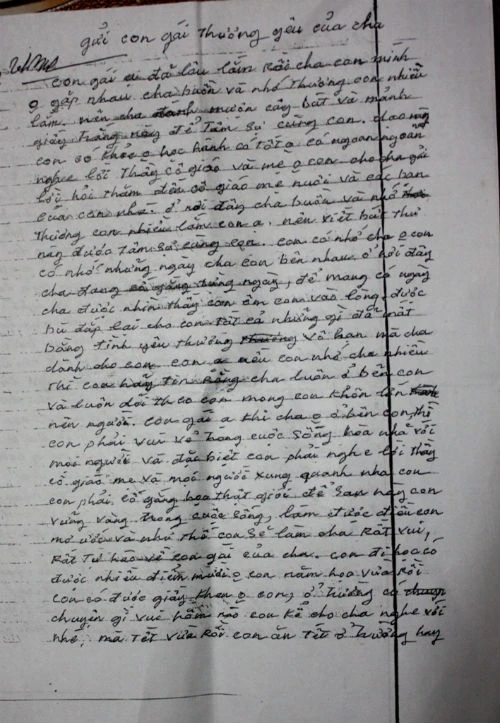 gửi con gái thương yêu của cha
con gái ơi đã lâu lắm rồi cha con mình
o gặp nhau cha buồn và nhớ thương con nhiều
lắm nên cha đành mượn cây bút và mảnh
giấy trắng này để tâm sự cùng con. dạo này
con có khỏe o học hành có tốt o có ngoan ngoãn
nghe lời thầy cô giáo và mẹ o con. cho cha gửi
lời hỏi thăm đến cô giáo mẹ nuôi và các bạn
của con nha. ở nơi đây cha buồn và nhớ
thương con nhiều lắm con ạ. nên viết bức thư
này được tâm sự cùng con. con có nhớ cha o con
có nhớ những ngày cha con bên nhau. ở nơi đây
cha đang cố gắng từng ngày, để mong có ngày
cha được nhìn thấy con ôm con vào lòng, được
bù đắp lại cho con tất cả những gì đã mất
bằng tình yêu thương thương vô hạn mà cha
dành cho con. con ạ nếu con nhớ cha nhiều
thì con hãy tin rằng cha luôn ở bên con
và luôn dõi theo con mong con khôn lớn
nên người. con gái ạ khi cha o ở bên con, thì
con phải vui vẻ trong cuộc sống hòa nhã với
mọi người và đặc biết con phải nghe lời thầy
cô giáo mẹ và mọi người xung quanh nha con
con phải cố gắng học thật giỏi để sau này con
vững vàng trong cuộc sống, làm được điều con
mơ ước và như thế con sẽ làm cha rất vui,
rất tự hào về con gái của cha. con đi học có
được nhiều điểm mười o con năm học vừa rồi
con có được giấy khen o con, ở trường có
chuyện gì vui hãy con kể cho cha nghe với
nhé, mà tết vừa rồi con ăn tết ở trường hay